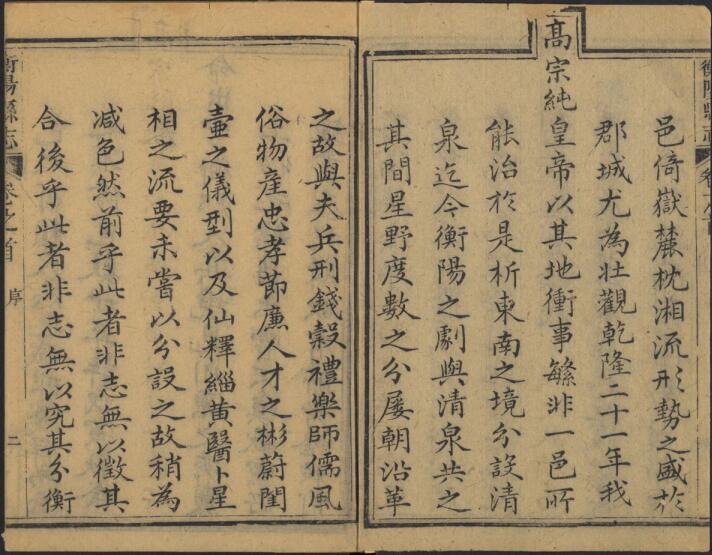 邑倚嶽麓枕湘流形勢之盛於
郡城尤為壯觀乾隆二十一年我
高宗純皇帝以其地衝事繁非一邑所
能治於是析東南之境分設清
泉迄今衡陽之劇與清泉共之
其間星野度數之分屢朝沿革
之故與夫兵刑錢穀禮樂師儒風
俗物產忠孝節廉人才之彬蔚閨
壼之儀型以及仙釋緇黃醫卜星
相之流要未嘗以分設之故稍為
減色然前乎此者非志無以徵其
合後乎此者非志無以究其分衡
衡陽縣志
卷之首
序
二
衡陽縣志